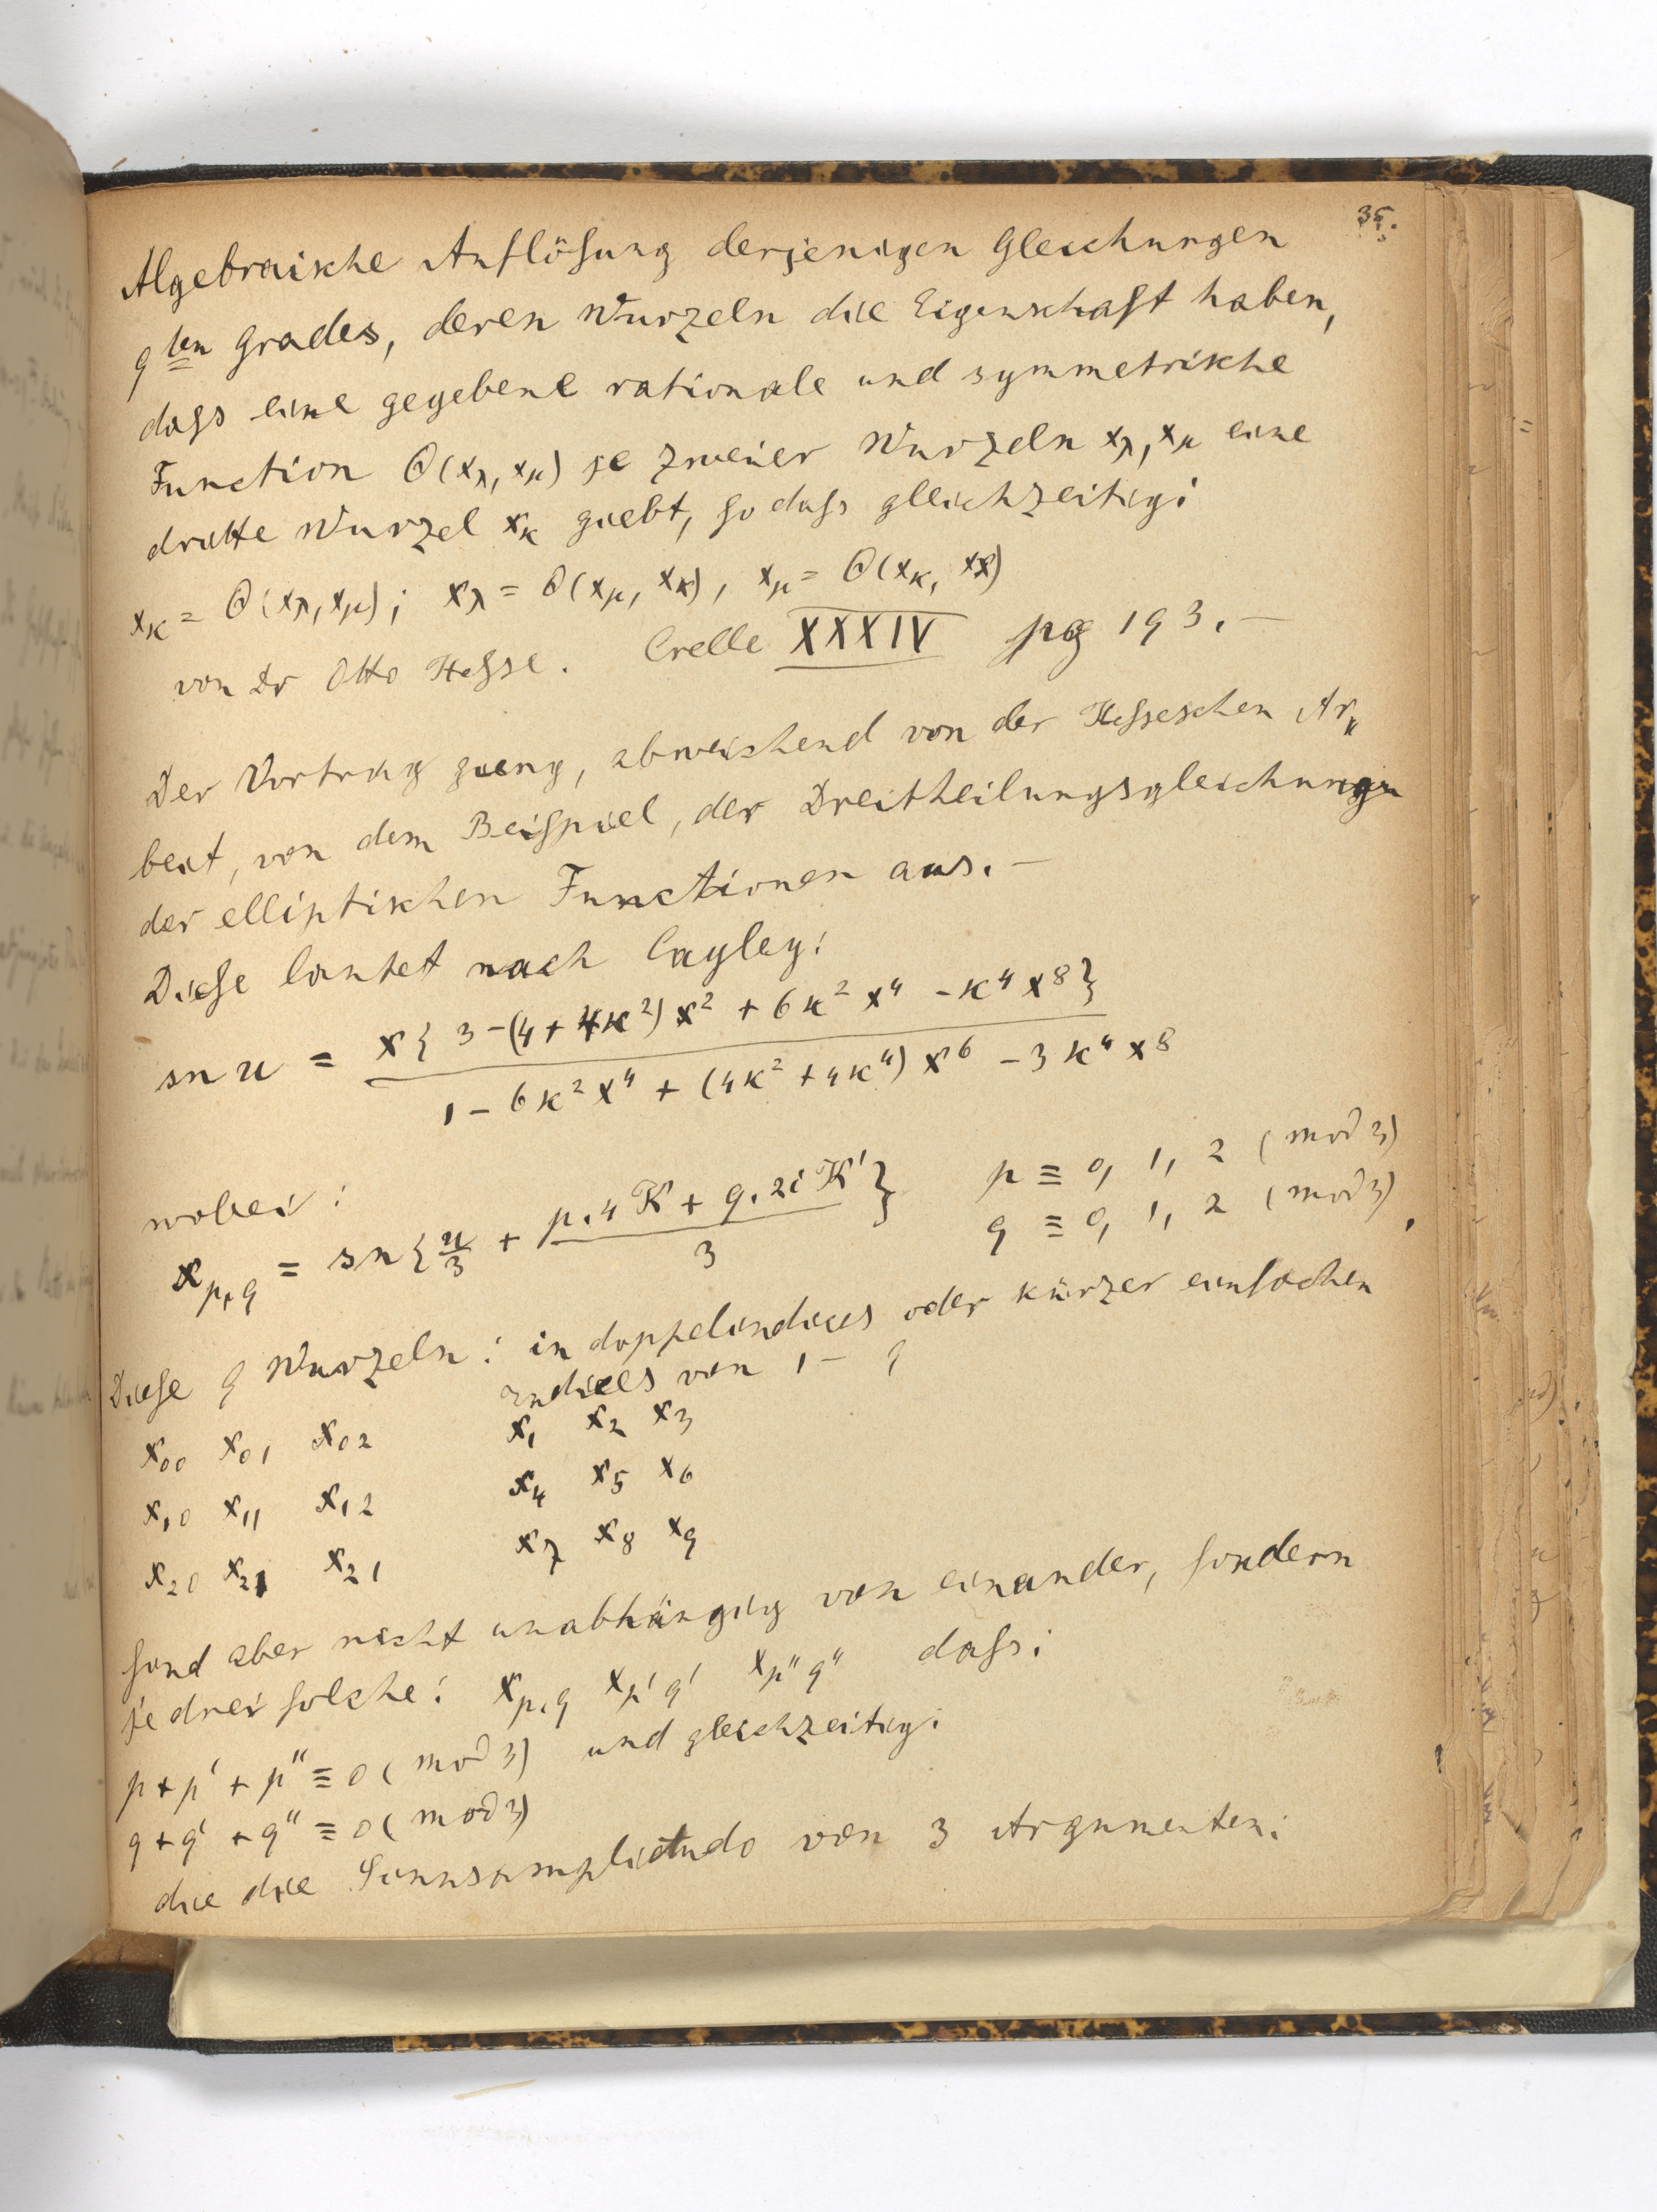 35.
Algebraische Auflösung derjenigen Gleichungen
9ten Grades, deren Wurzeln die Eigenschaft haben,
dass eine gegebene rationale und symmetrische
Function Θ(xλ, xμ) je zweier Wurzeln xλ, xμ eine
dritte Wurzel xκ giebt, so dass gleichzeitig:
xκ = Θ(xλ, xμ); xλ = Θ(xμ, xκ), xμ = Θ(xκ, xλ)
von Dr Otto Hesse. Crelle XXXIV pg 193.—
Der Vortrag gieng, abweichend von der Hesseschen Ar„
beit, von dem Beispiel, der Dreitheilungsgleichungen
der elliptischen Functionen aus.—
Diese lautet nach Cayley:
sn u = x{3-(4+4κ²)x² + 6κ²x⁴ - κ⁴x⁸} / 1 - 6κ²x⁴ + (4κ² + 4κ⁴)x⁶ - 3κ⁴x⁸
wobei:
x p,q = sn{u/3 + p.4K + q.2iK'/3} p ≡ 0, 1, 2 (mod 3)
q ≡ 0, 1, 2 (mod 3),
Diese 9 Wurzeln: in doppelindices oder kürzer einfachen
indices von 1 – 9
x00 x01 x02 x1 x2 x3
x10 x11 x12 x4 x5 x6
x20 x21 x21 x7 x8 x9
sind aber nicht unabhängig von einander, sondern
je drei solche: x p,q x p'q' x p''q'' dass:
p + p' + p'' ≡ 0 (mod 3) und gleichzeitig:
q + q' + q'' ≡ 0 (mod 3)
die die Sinusamplitudo von 3 Argumenten: